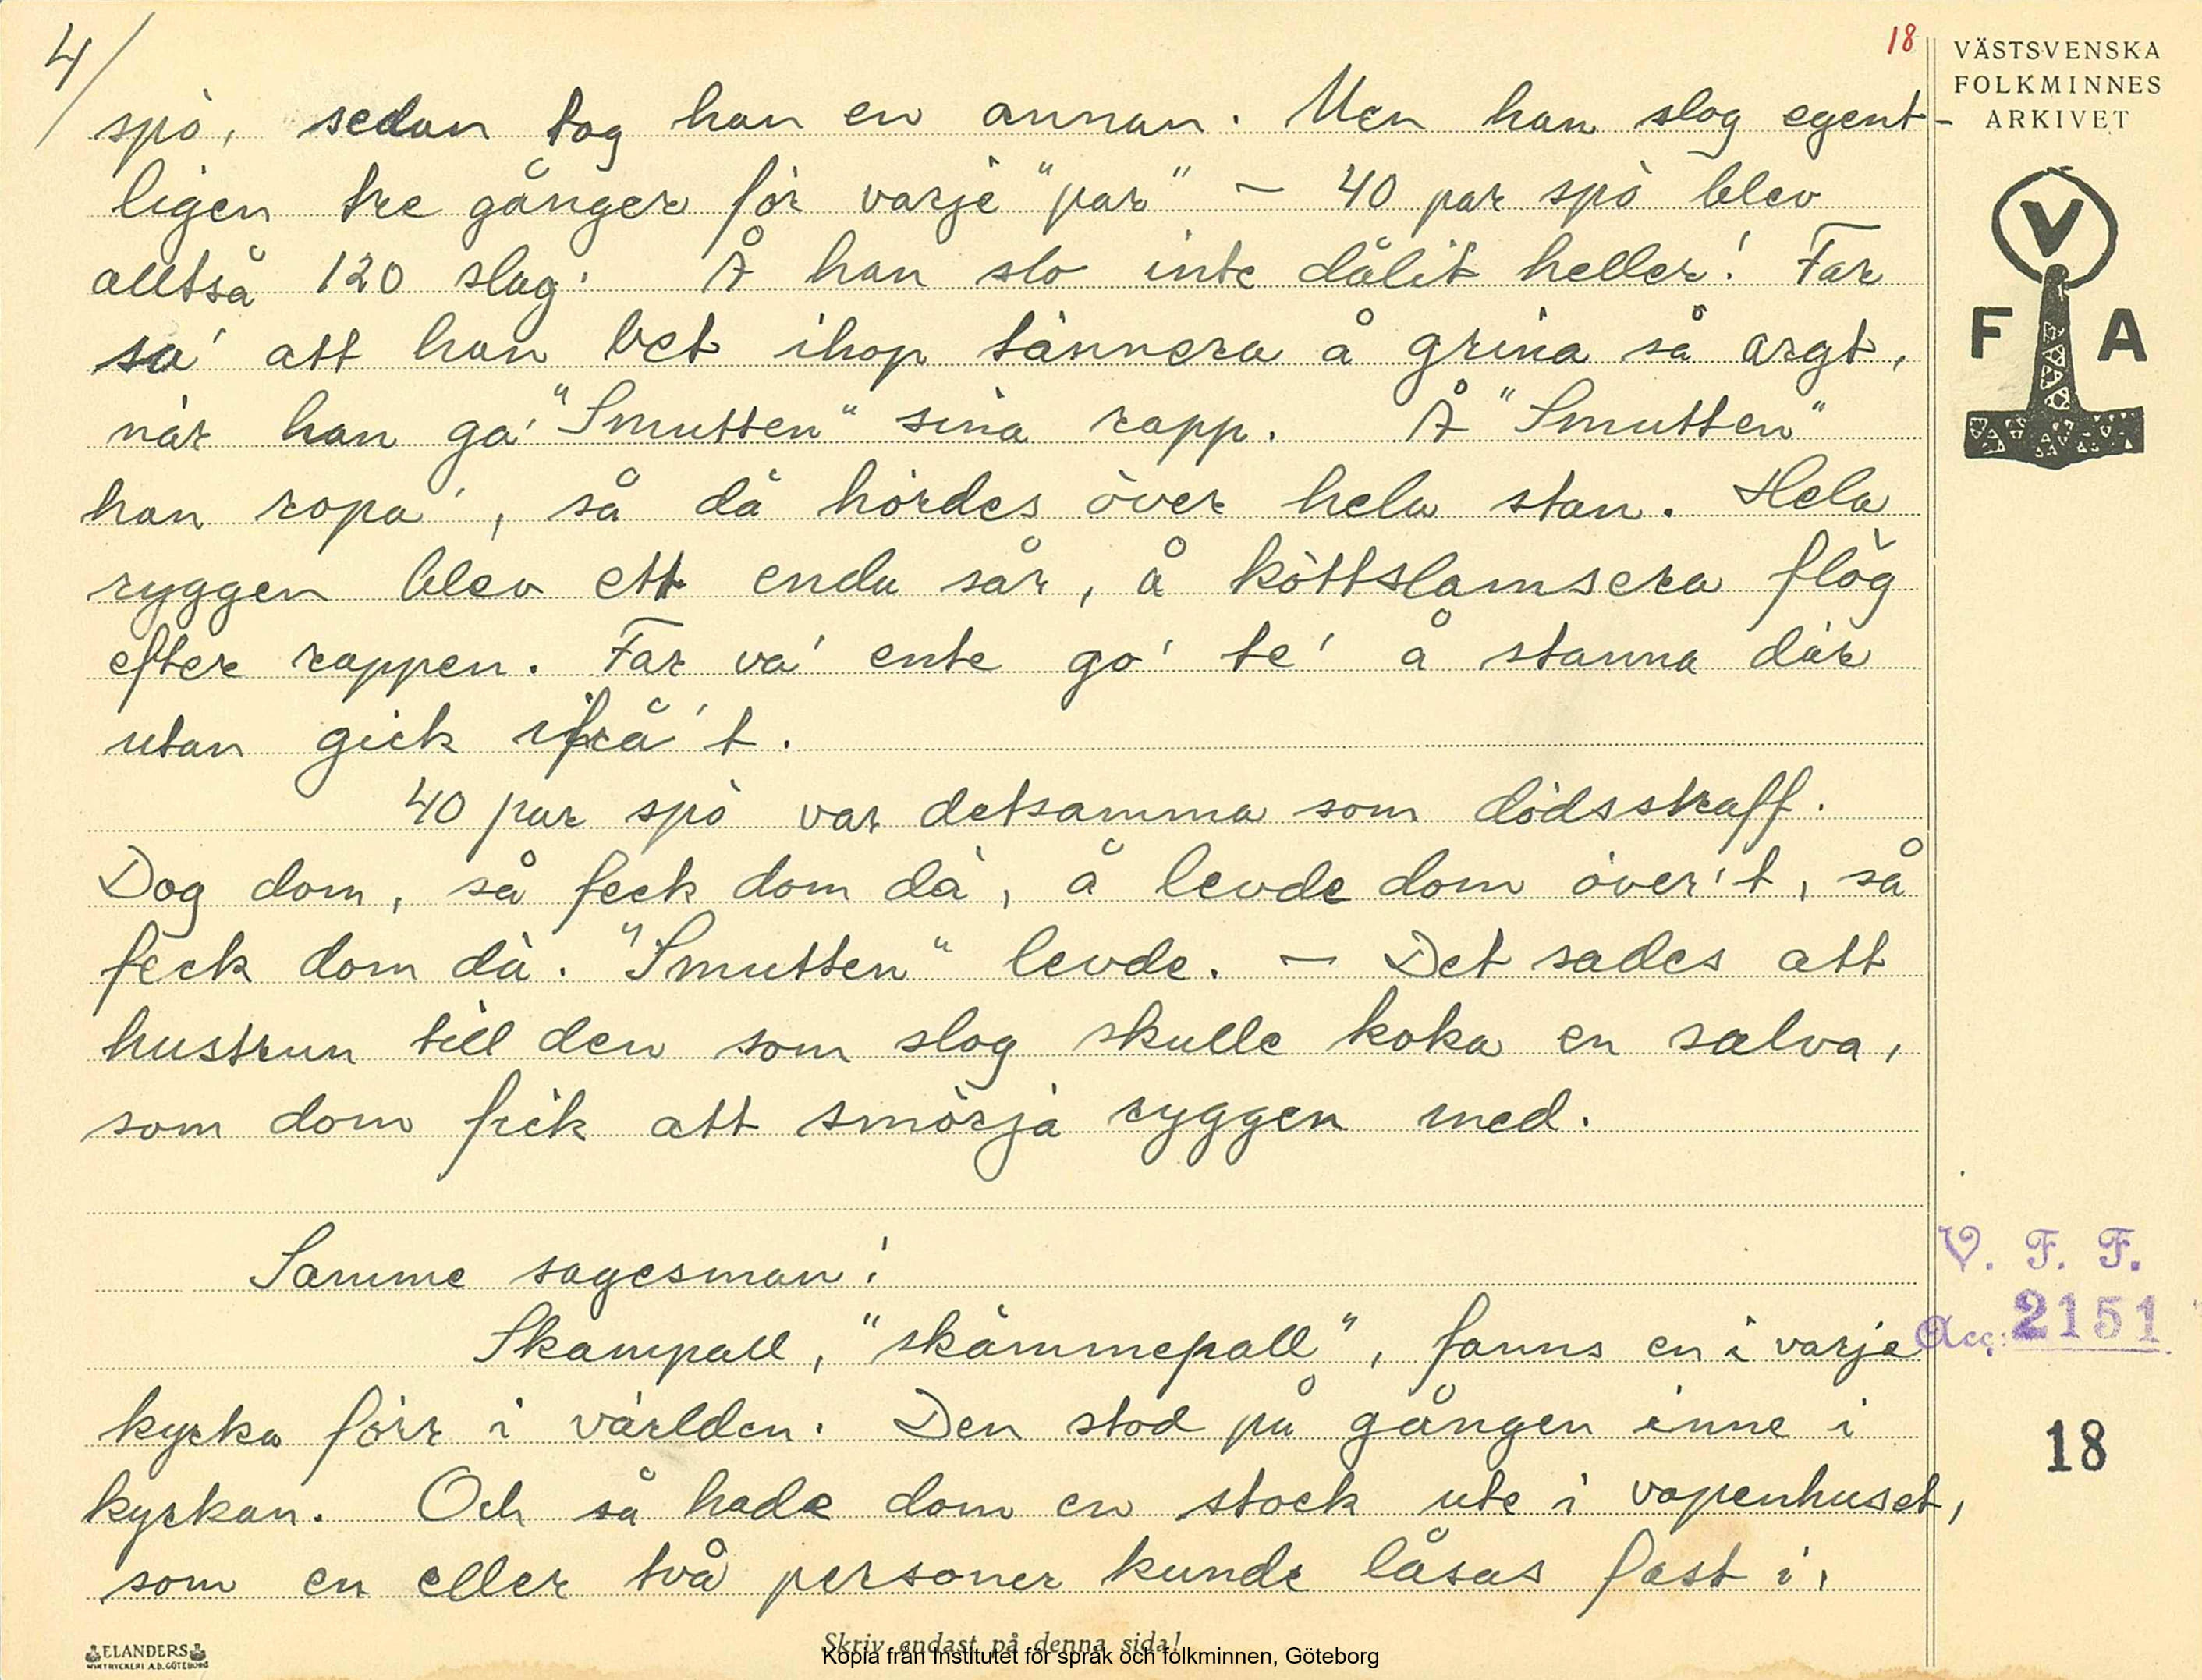 4/
18
VÄSTSVENSKA
FOLKMINNES
ARKIVET
V
F A
spö, sedan tog han en annan. Men han slog egent-
ligen tre gånger för varje "par" – 40 par spö blev
alltså 120 slag. Å han slo inte dålit heller! Far
sa' att han bet ihop tännera å grina så argt,
när han ga' "Smutten" sina rapp. Å "Smutten"
han ropa', så dä hördes över hela stan. Hela
ryggen blev ett enda sår, å köttslamsera flög
efter rappen. Far va' ente go' te' å stanna där
utan gick ifrå't.
40 par spö var detsamma som dödsstraff.
Dog dom, så feck dom dä, å levde dom över't, så
feck dom dä. "Smutten" levde. – Det sades att
hustrun till den som slog skulle koka en salva,
som dom fick att smörja ryggen med.
Samme sagesman:
Skampall, "skämmepall", fanns en i varje
kyrka förr i världen. Den stod på gången inne i
kyrkan. Och så hade dom en stock ute i vapenhuset,
som en eller två personer kunde låsas fast i,
V. F. F.
Acc: 2151
18
ELANDERS
Skriv endast på denna sida!
Kopia från Institutet för språk och folkminnen, Göteborg